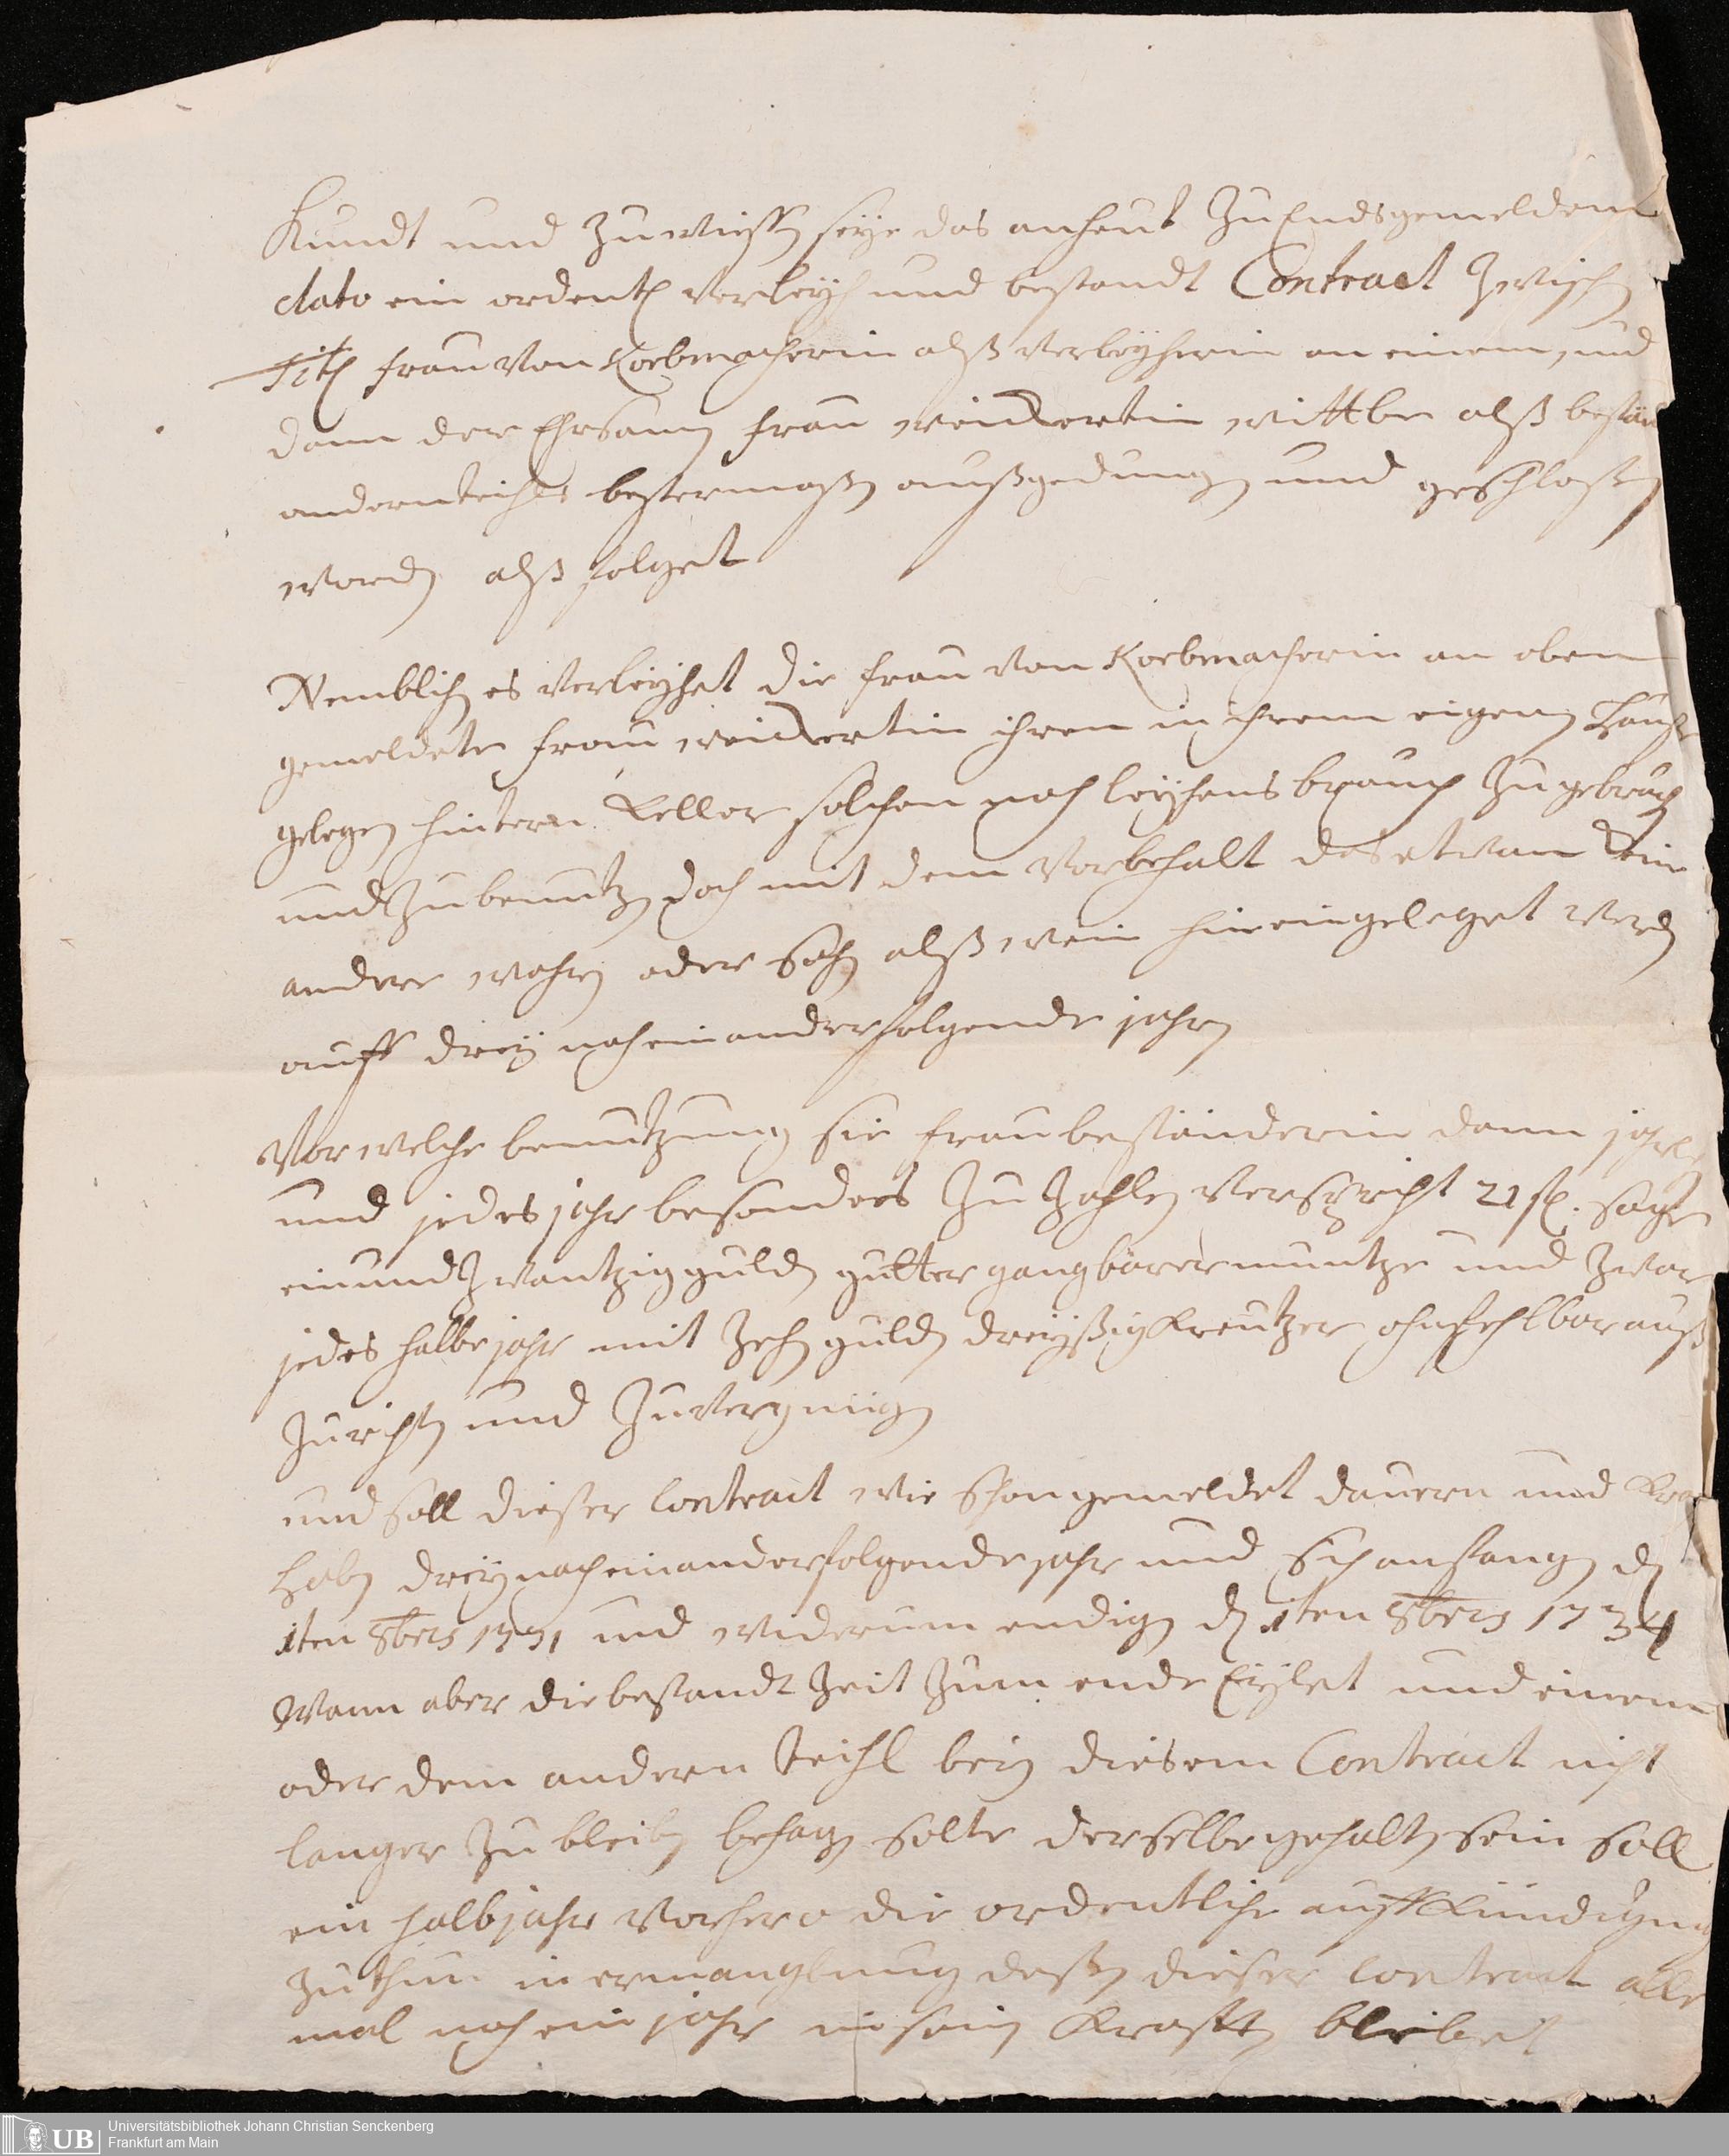 Kundt und Zuwissen seye das anheut Zu Endsgemeldem
dato ein ordentl Verleyh und bestandt Contract Zwischen
Titl frau Von Korbmacherin alß Verleyherin an einem, und
dann der Ehrsamen frau weickertin wittbe alß
anderntheihls bestermaßen außgedungen und geschloßen
worden alß folget
Nemblich es Verleyhet die frau Von Korbmacherin an oben
gemeldete frau weickertin ihren in ihrem eigenen Hauße
gelegen hintern Keller solchen nach leyhens brauch Zu gebrauchen
und Zu benutzen doch mit dem Vorbehalt das etwan keine
andere wahren oder sachen alß wein hineingeleget werden
auff drey nacheinanderfolgende jahren
Vor welche benutzung sie frau beständerin dann jährl
und jedes jahr besonders Zu Zahlen Verspricht 21 fl. sage
einundZwantzig gulden gutter gangbarer muntze und Zwar
jedes halbe jahr mit Zehen gulden dreyßig Kreutzer ohnfehlbar auß
Zurichten und Zuvergnügen
und soll dießer Contract wie schon gemeldet dauern und
Haben drey nacheinanderfolgende jahr und sich anfangen den
1ten 8bris 1731 und widerum endigen den 1ten 8bris 1734
Wann aber die bestandt Zeit Zum ende Eylet und einem
oder dem andern theihl bey diesem Contract nicht
langer Zu bleiben behagen solte derselbe gehalten sein soll
ein halb jahr Vorhero die ordentliche auffkündigung
Zu thun in ermanglung deßen dießer Contract alle
mal noch ein jahr in seinen Krafften bleibet
Universitätsbibliothek Johann Christian Senckenberg
UB Frankfurt am Main